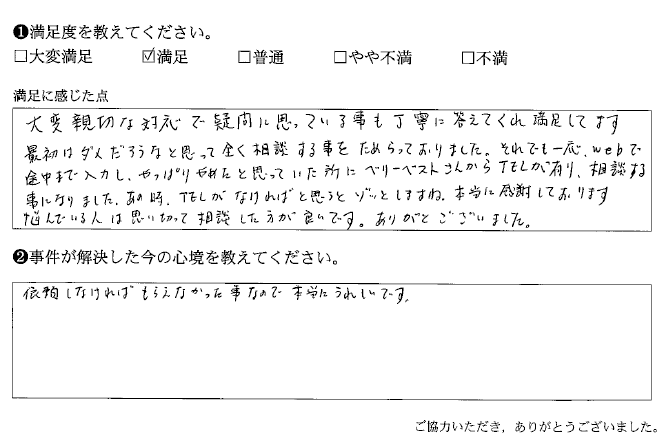 ❶満足度を教えてください。
□大変満足 ☑満足 □普通 □やや不満 □不満
満足に感じた点
大変親切な対応で疑問に思っている事も丁寧に答えてくれ満足してます
最初はダメだろうなと思って全く相談する事をためらっておりました。それでも一応、webで
途中まで入力し、やっぱりやめたと思っていた所にベリーベストさんからTELが有り、相談する
事になりました。あの時、TELがなければと思うとゾッとしますね。本当に感謝しております
悩んでいる人は思い切って相談した方が良いです。ありがとうございました。
❷事件が解決した今の心境を教えてください。
依頼しなければもらえなかった事なので本当にうれしいです。
ご協力いただき，ありがとうございました。